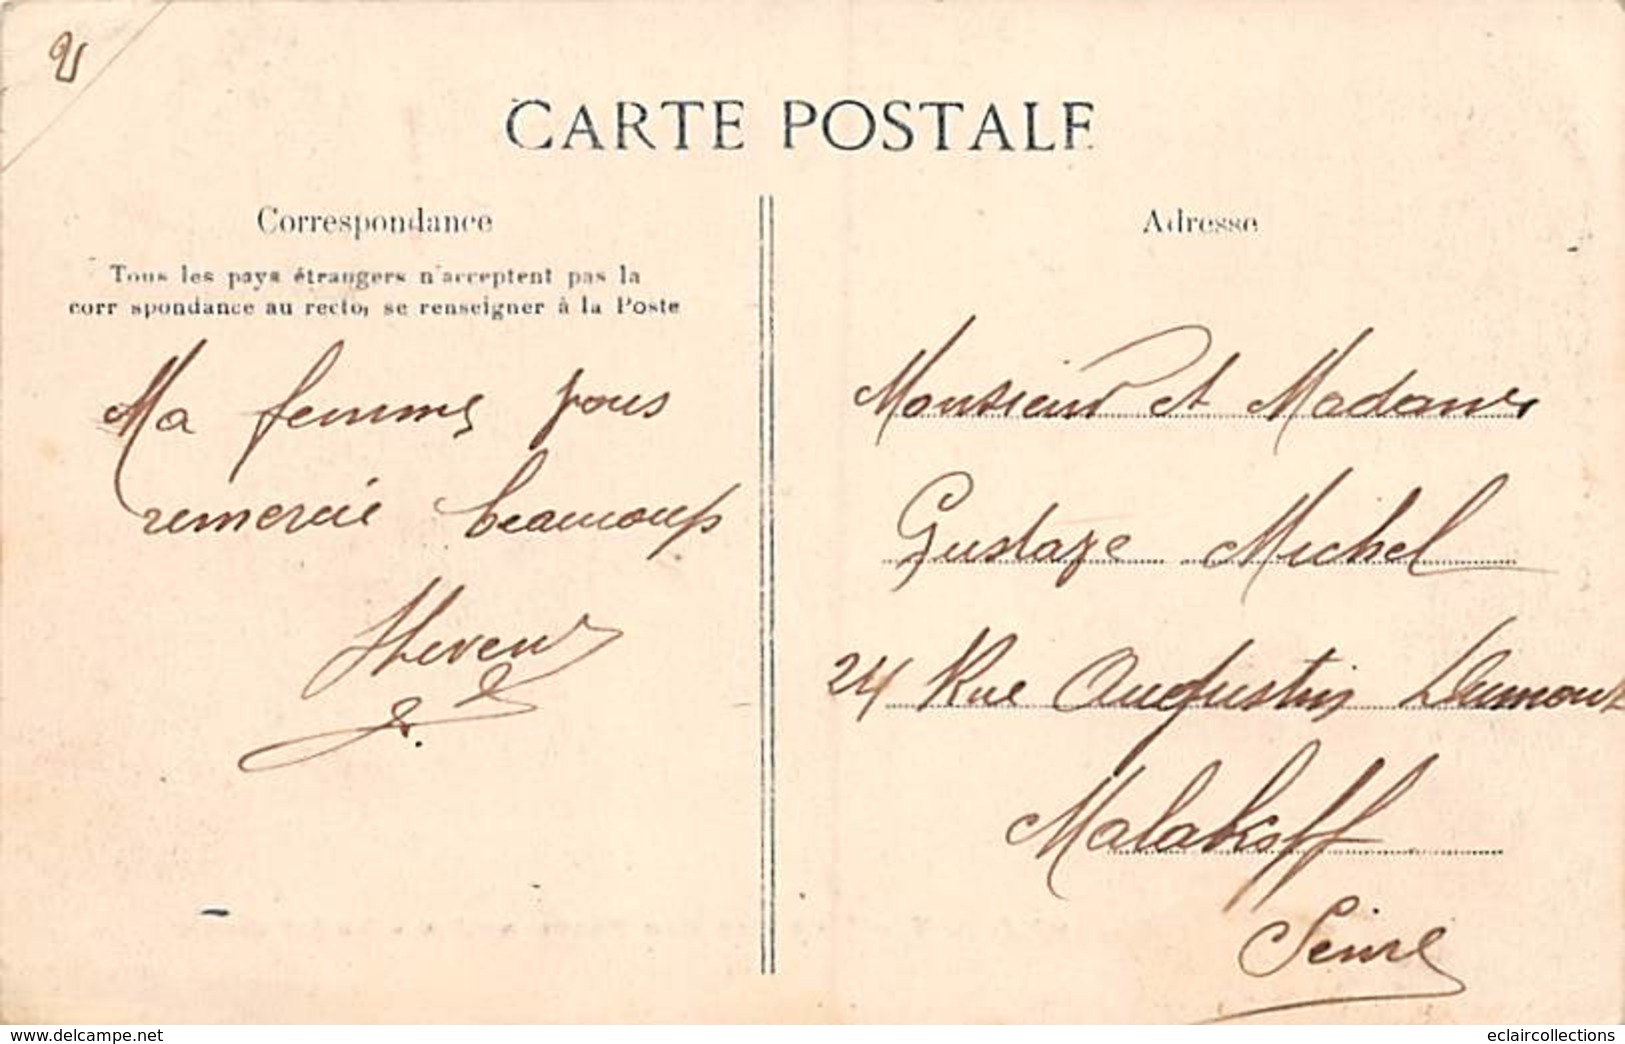 CARTE POSTALE
Correspondance
Tous les pays étrangers n'acceptent pas la
corr spondance au recto, se renseigner à la Poste
Ma femme vous
remercie beaucoup
Adresse
Monsieur et Madame
Gustave Michel
24 Rue Augustin Dumont
Malakoff
Seine
www.delcampe.net
eclaircollections